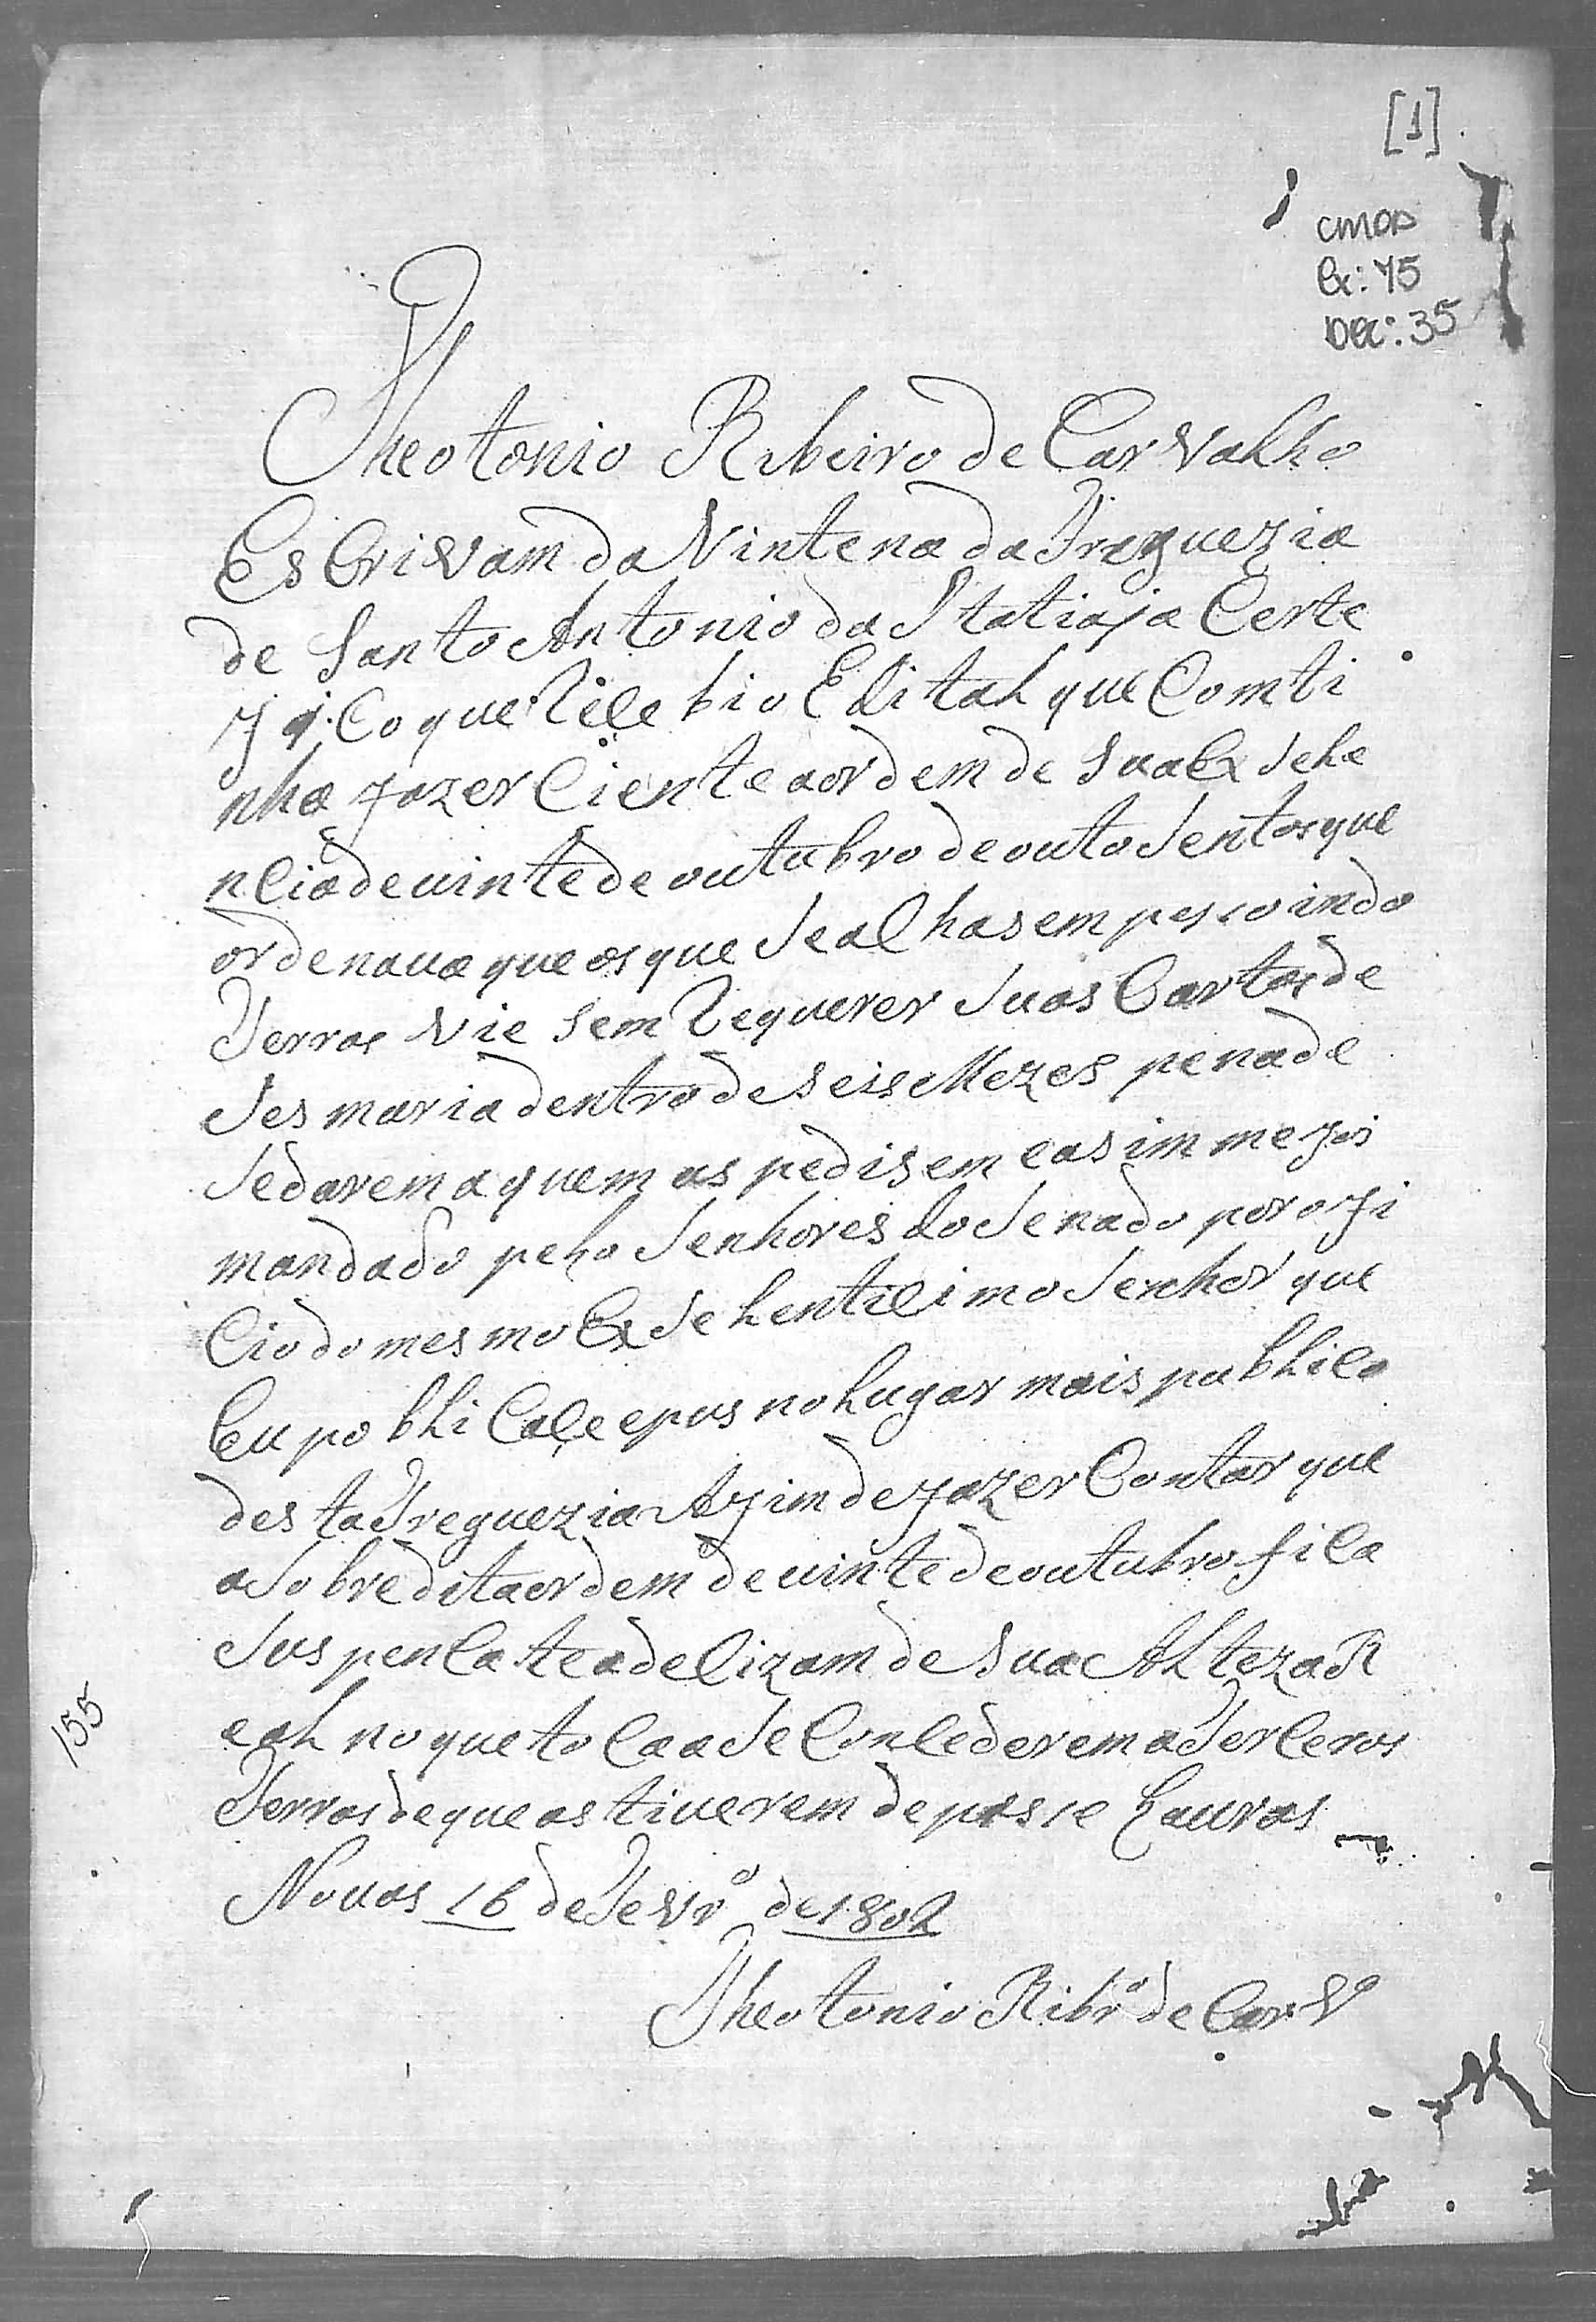 [1]
CMOP
Cx: 75
Doc: 35
Theotonio Ribeiro de Carvalho
EsCrivam da Vintena da Freguezia
de Santo Antonio da Itatiaja Certe
fiCo que ReCebi o Edital que Comti
nha fazer Ciente a ordem de Sua Exsele
nCia de uinte de outubro de outo Sentos que
ordenaua que os que Se alhasem pesoindo
Terras VieSem Requerer Suas Cartas de
Sesmaria dentro de Seis Mezes pena de
Se darem a quem as pedisem e asim me foi
mandado pelo Senhores do Senado por ofi
Cio do mesmo ExSelentiCimo Senhor que
Eu pobliCace e pus no Lugar mais publiCo
desta Freguezia Afim de fazer Contar que
a Sobredita ordem de uinte de outubro fiCa
SuspenCa te a deCizam de Sua Alteza R
eal no que toCa a Se ConCederem a TerCeros
Terras de que as tiuerem de posse Lauras
Nouas 16 de Fevrº de 1802
Theotonio Ribrº de Carvº
155